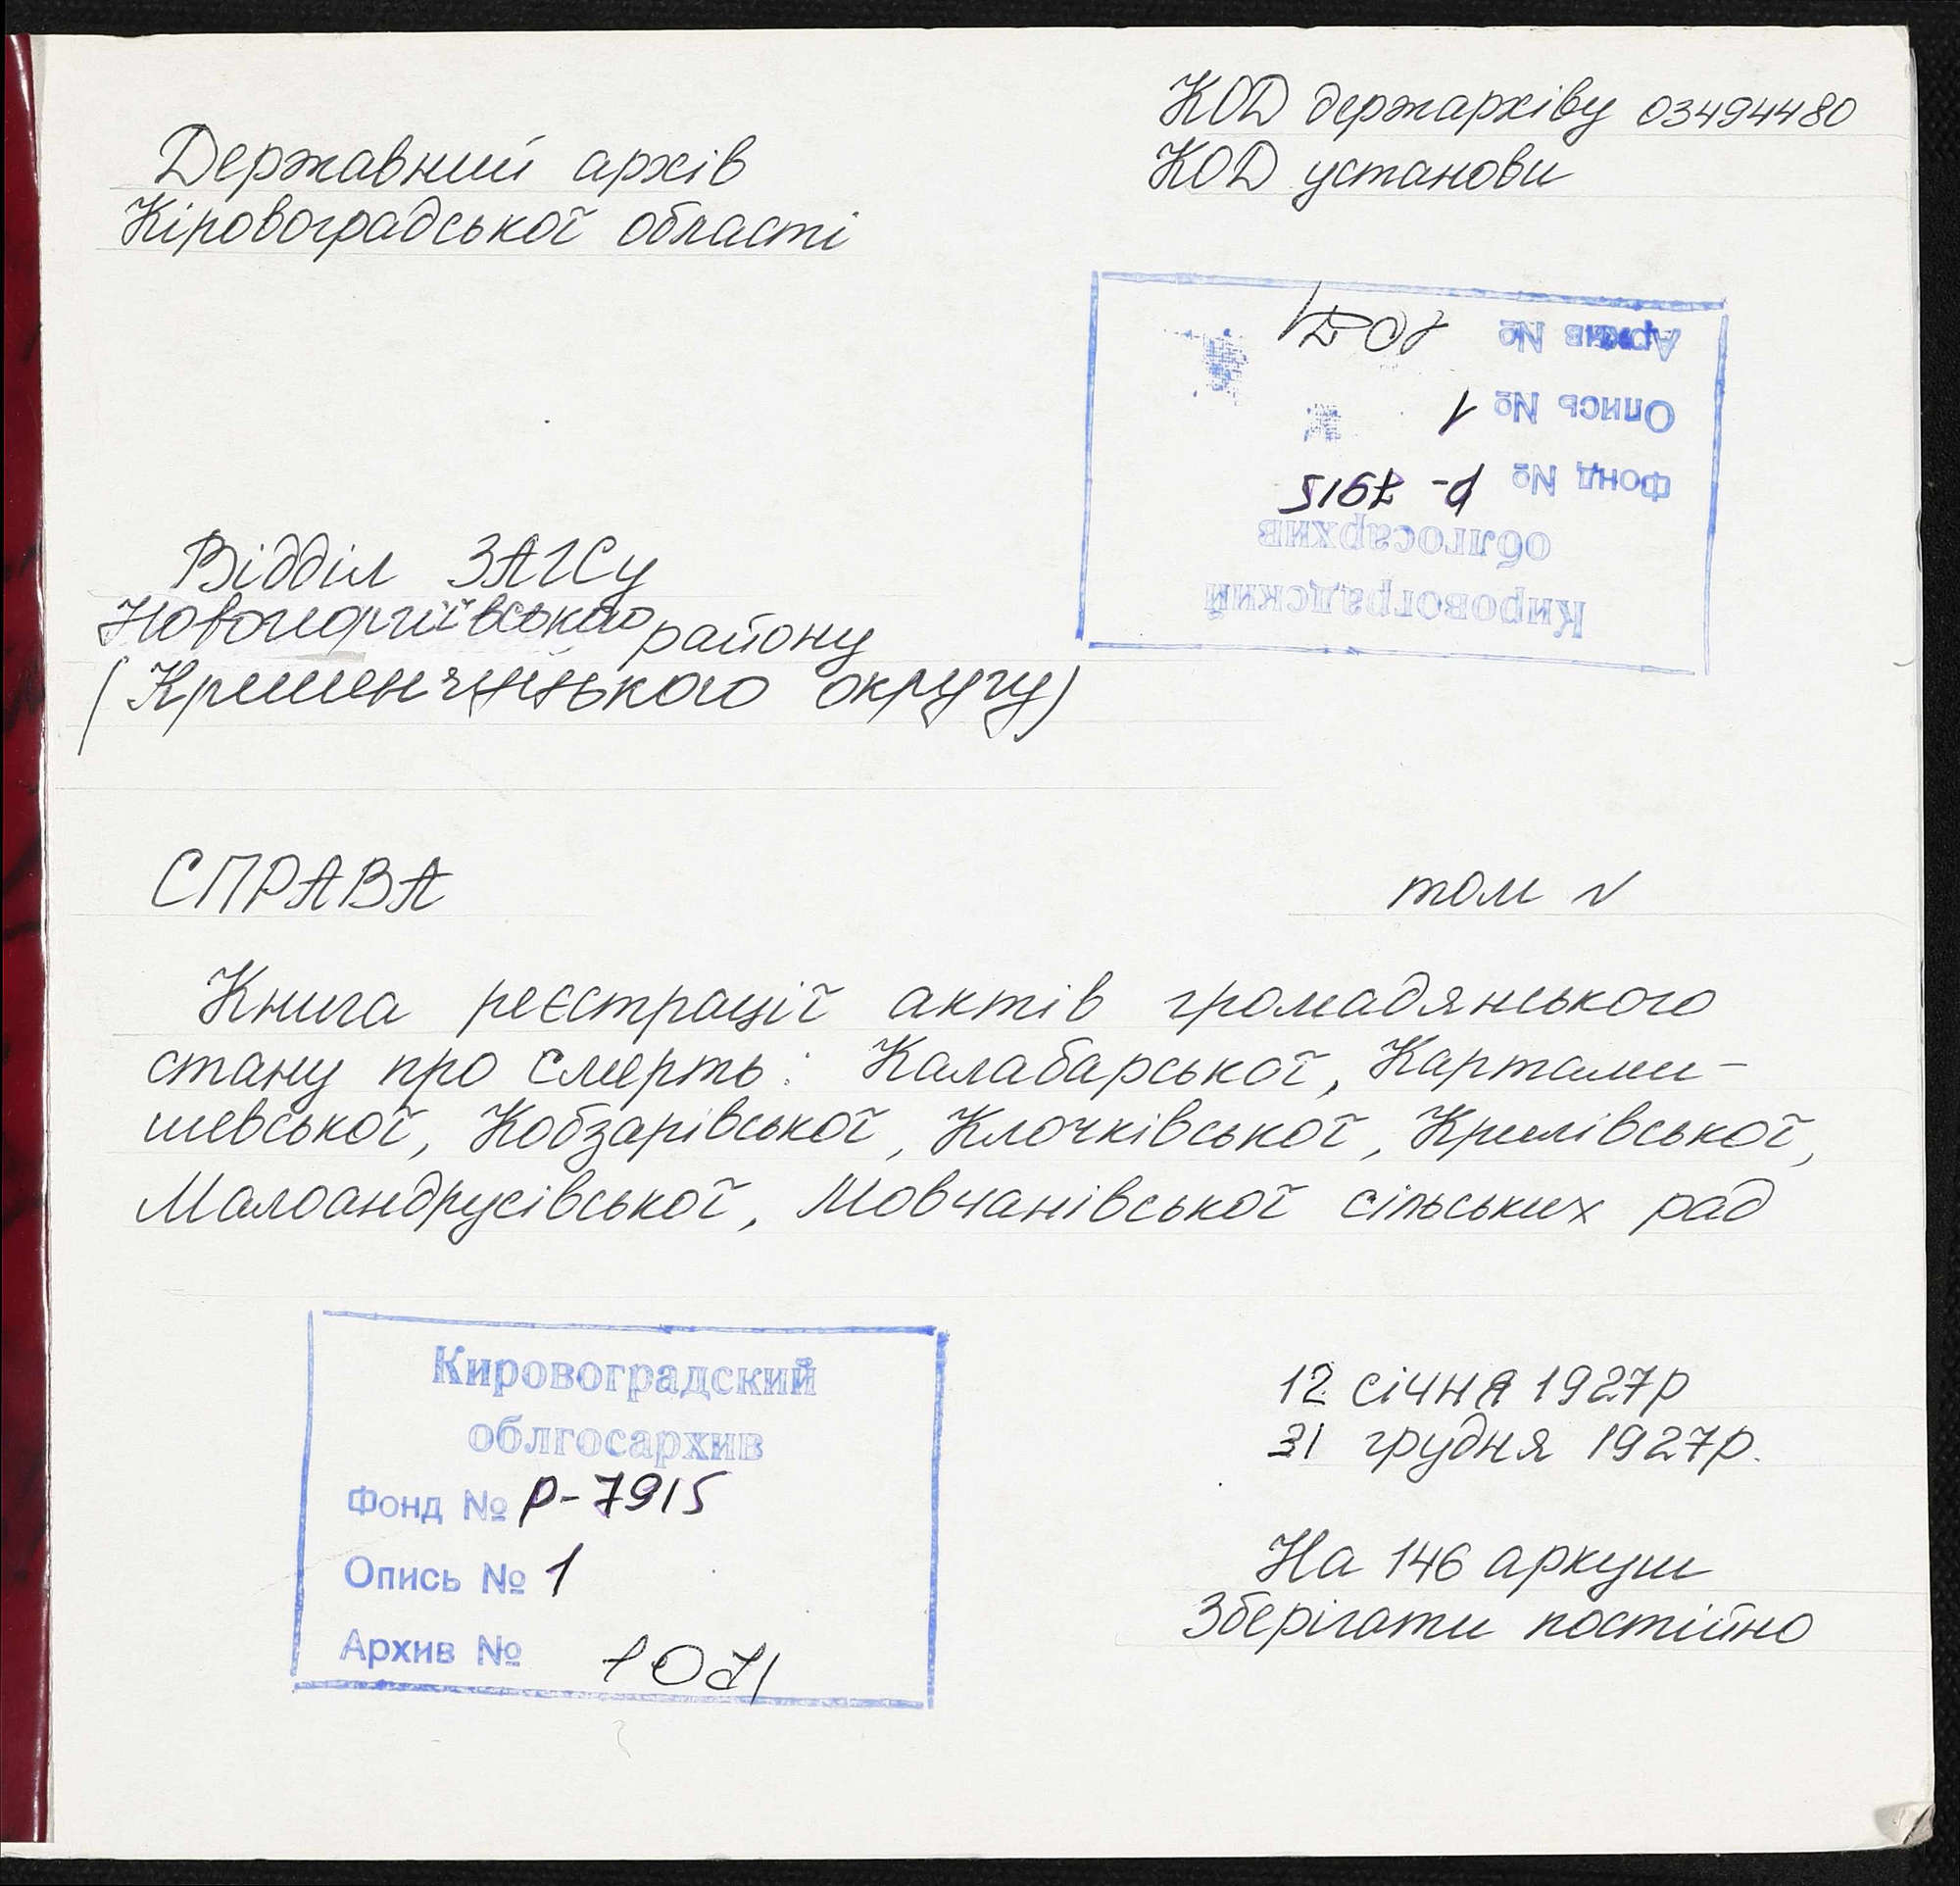 КОД держархіву 03494480
КОД установи
Державний архів
Кіровоградської області
Архив №
Опись № 1
Фонд № Р-7915
облгосархив
Кировоградский
Відділ ЗАГСу
Новогеоргіївського району
(Кременчуцького округу)
СПРАВА том №
Книга реєстрації актів громадянського
стану про смерть: Калабарської, Картами-
шевської, Кобзарівської, Клочківської, Крилівської,
Малоандрусівської, Мовчанівської сільських рад
Кировоградский
облгосархив
Фонд № Р-7915
Опись № 1
Архив №
12 січня 1927р
31 грудня 1927р.
На 146 аркуш
Зберігати постійно